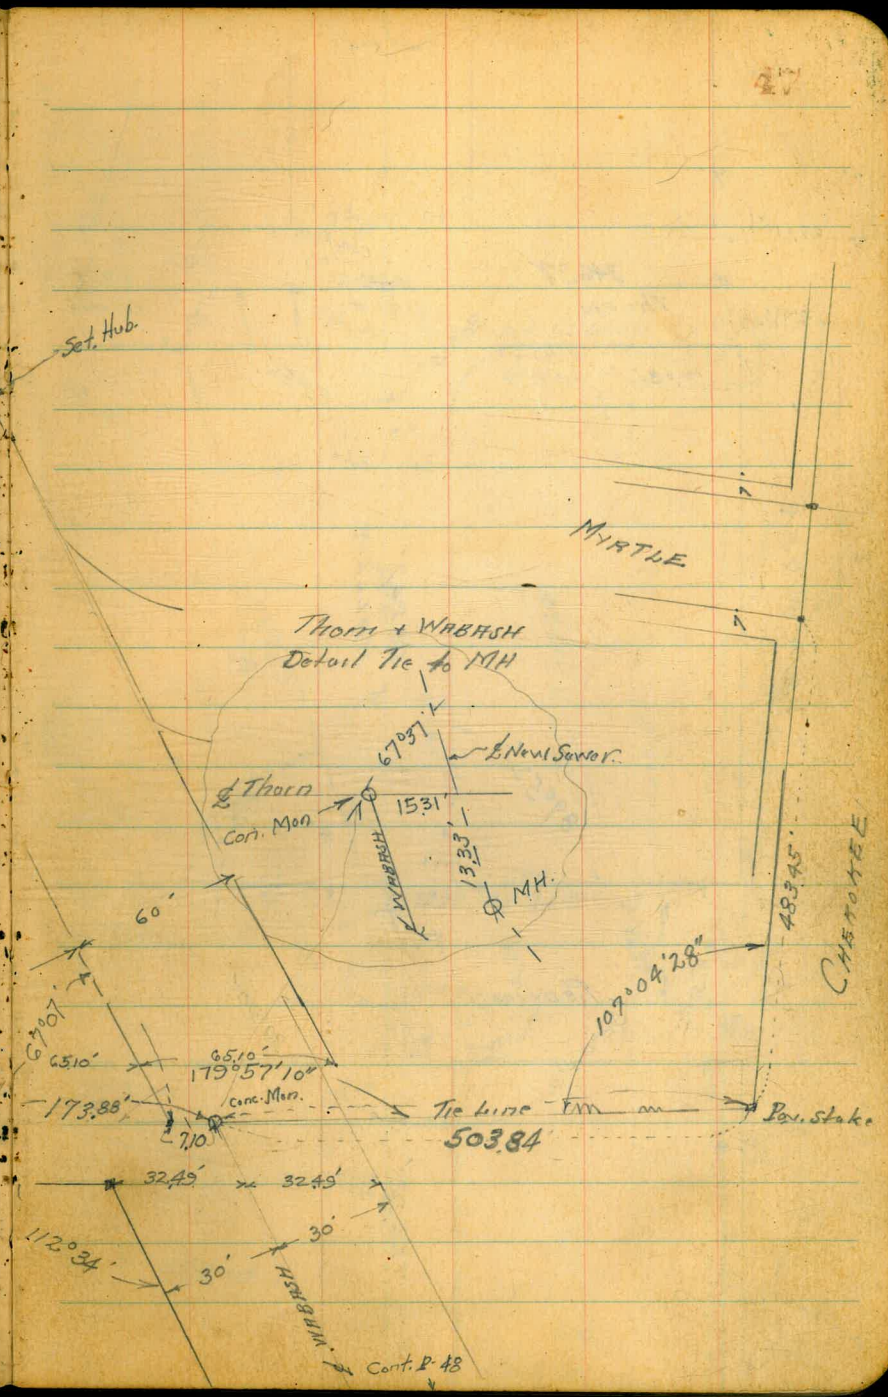 47
Set. Hub.
7'
MYRTLE
7'
Thorn + WABASH
Detail Tie to MH
67°37'
℄ New Sewer.
℄ Thorn
15.31'
Con. Mon
℄ WABASH
13.33'
MH.
483.45'
CHEROKEE
60'
107°04'28"
67°07'
65.10'
65.10'
179°57'10"
173.88'
Conc. Mon.
Tie Line
503.84
7.10
32.49'
32.49'
112°34'
30'
30'
℄ WABASH
Cont. P. 48